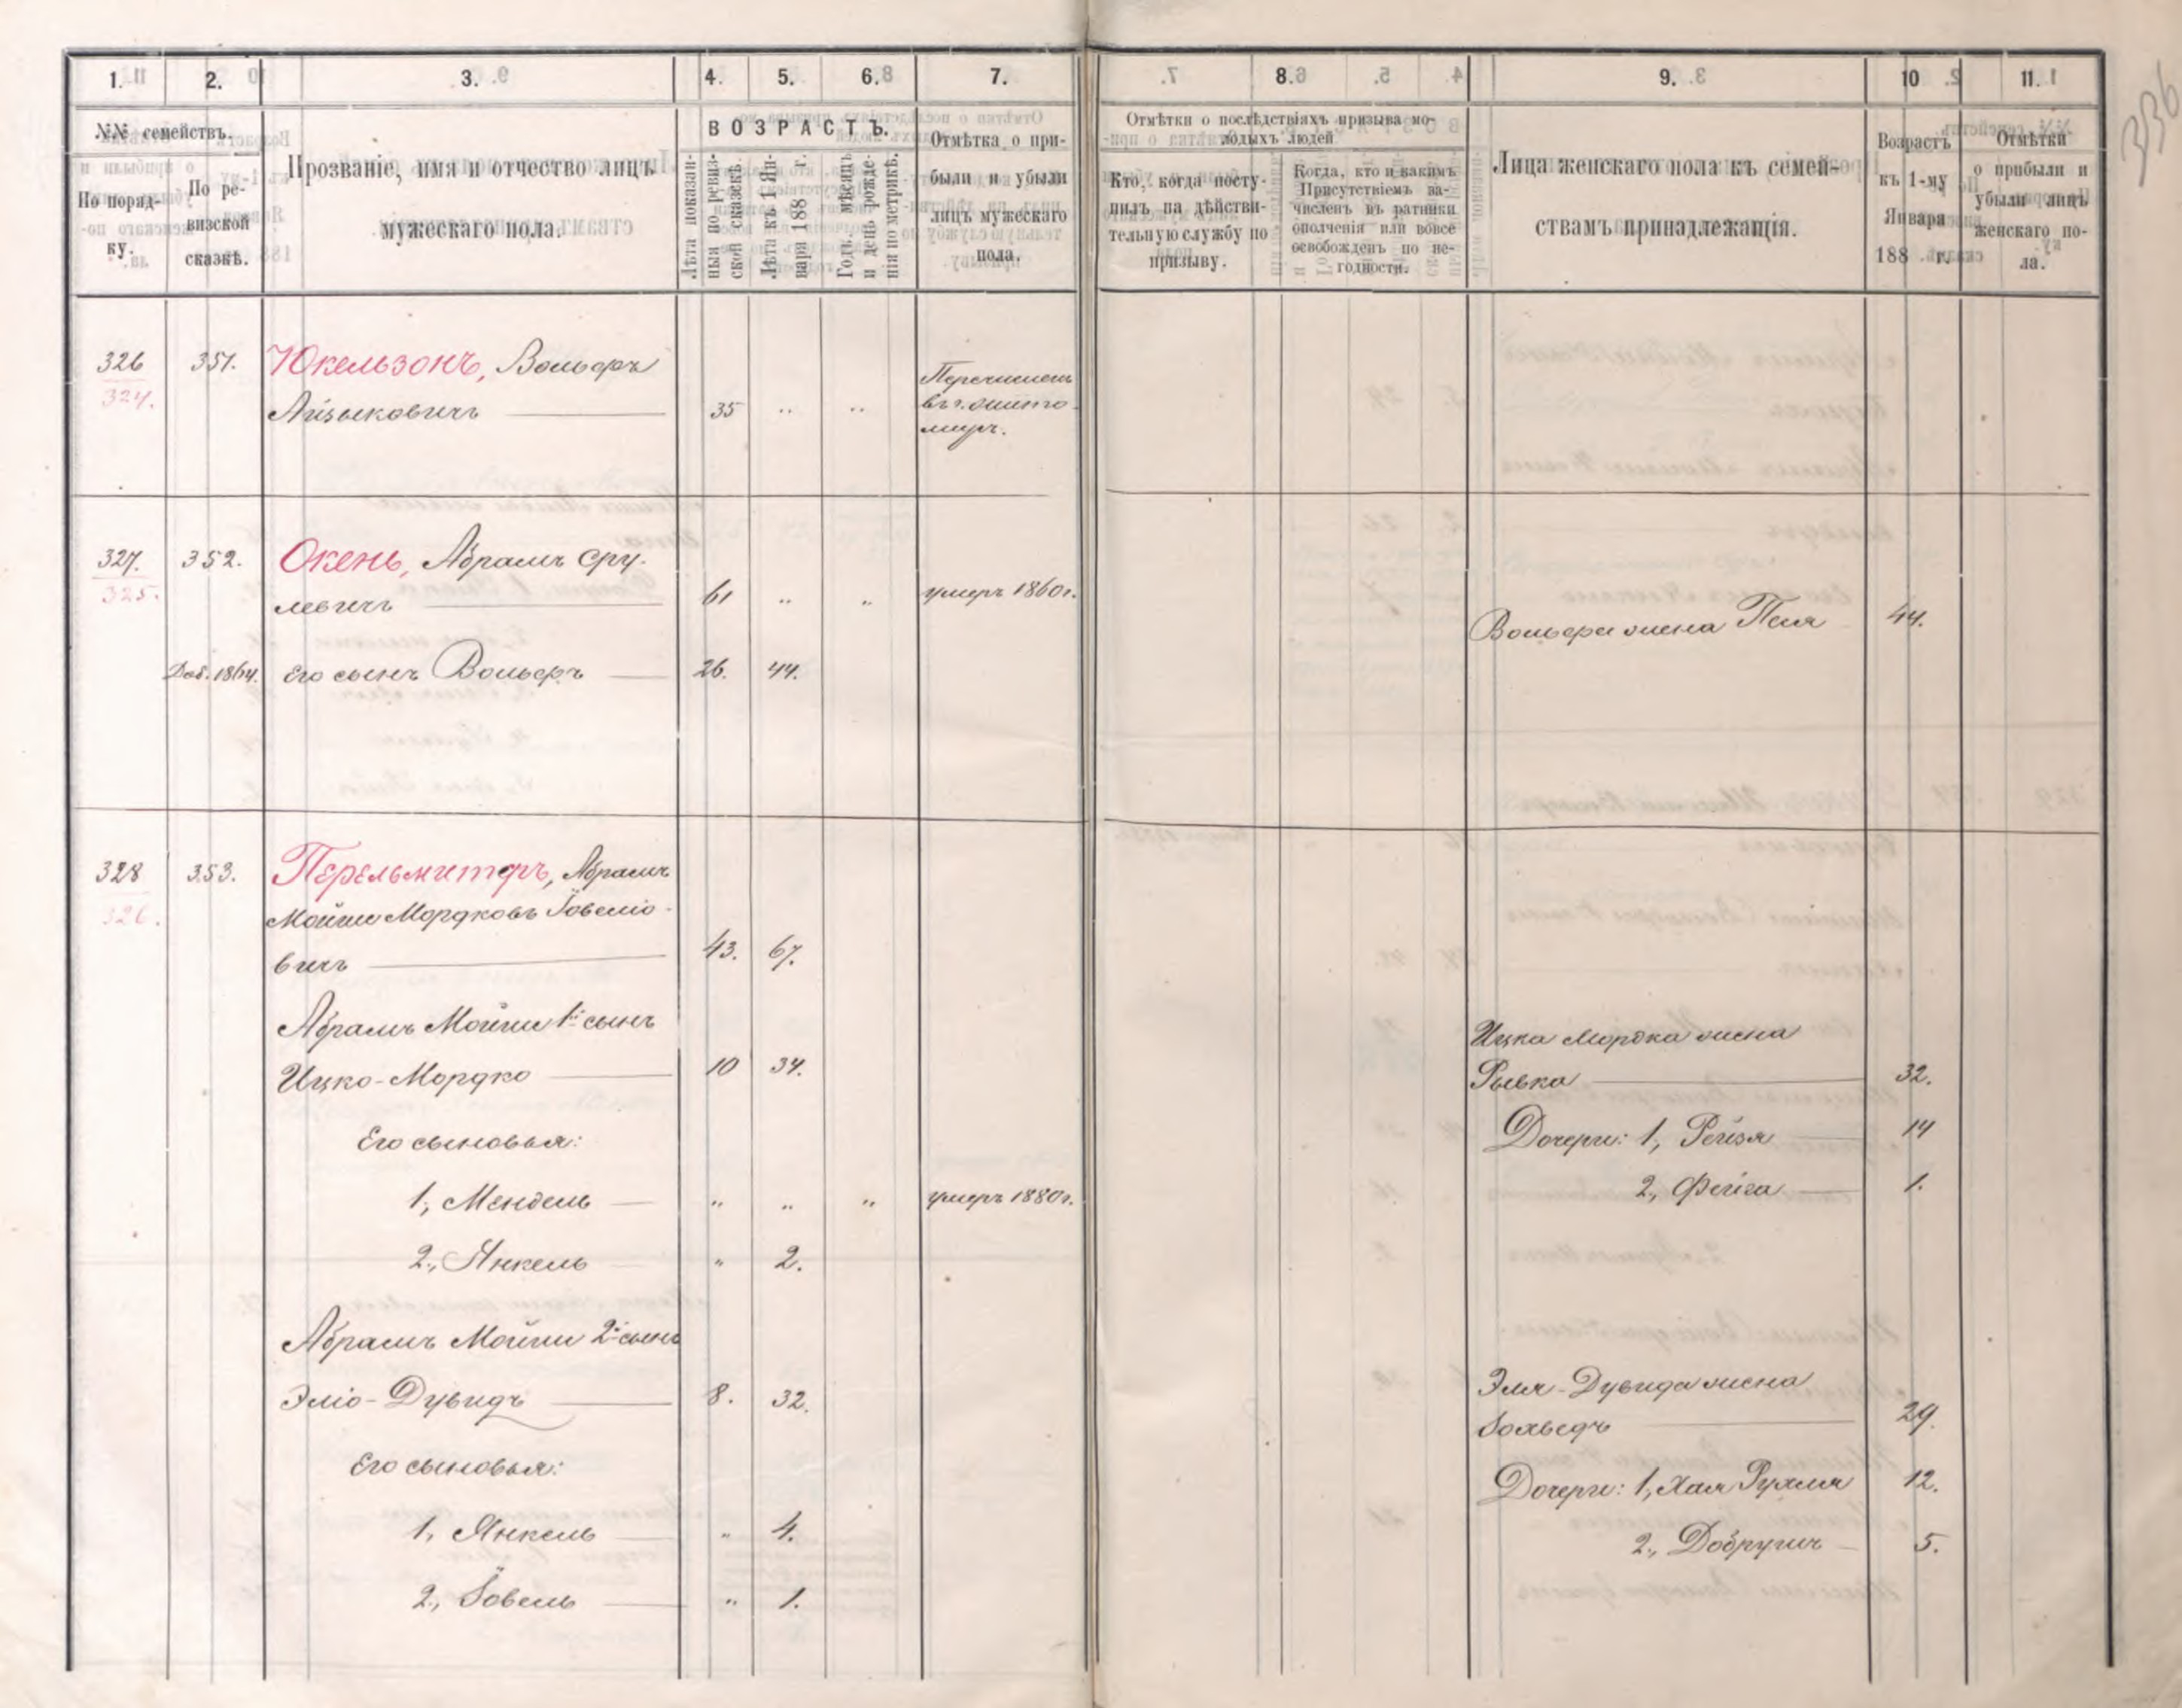 1. 2. 3. 4. 5. 6. 7. 8. 9. 10 11.
№№ семействъ.
По поряд-
ку.
По ре-
визской
сказкѣ.
Прозваніе, имя и отчество лицъ
мужескаго пола.
ВОЗРАСТЪ.
Лѣта показан-
ныя по ревиз-
ской сказкѣ.
Лѣта къ 1 Ян-
варя 188 г.
Годъ, мѣсяцъ
и день рожде-
нія по метрикѣ.
Отмѣтка о при-
были и убыли
лицъ мужескаго
пола.
Отмѣтки о послѣдствіяхъ призыва мо-
лодыхъ людей
Кто, когда посту-
пилъ на дѣйстви-
тельную службу по
призыву.
Когда, кто и какимъ
Присутствіемъ за-
численъ въ ратники
ополченія или вовсе
освобожденъ по не-
годности.
Лица женскаго пола къ семей-
ствамъ принадлежащія.
Возрастъ
къ 1-му
Января
188 г.
Отмѣтки
о прибыли и
убыли лицъ
женскаго по-
ла.
336
326 351. Юкельзонъ, Вольфъ
324. Айзыковичъ 35 .. ..
Перечисленъ
въ г. Жито-
миръ.
327. 352. Окень, Абрамъ Сру-
325. левичъ 61 .. .. умеръ 1860 г.
Вольфа жена Песя 44.
Доб. 1864. Его сынъ Вольфъ 26. 44.
328 353. Перельмитеръ, Абрамъ
326. Мойши Мордковъ Іовеліо-
вичъ 43. 67.
Абрамъ Мойши 1й сынъ
Ицко-Мордко 10 34.
Ицка Мордка жена
Рывка 32.
Его сыновья:
Дочери: 1, Рейзя 14
1, Мендель " " " умеръ 1880 г.
2, Фейга 1.
2., Янкель " 2.
Абрамъ Мойши 2й сынъ
Эліо-Дувидъ 8. 32.
Эля-Дувида жена
29.
Его сыновья:
Дочери: 1, Хая Рухля 12.
1, Янкель " 4.
2., 5.
2., Іовель " 1.